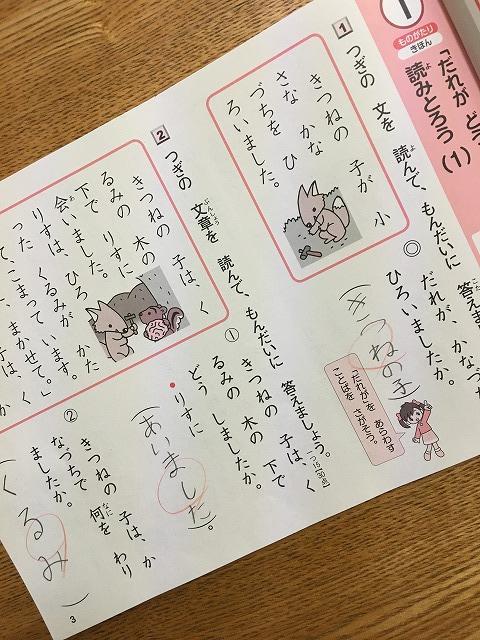 1
ものがたり
きほん
「だれが どう
読みとろう(1)
よ
1
つぎの 文を 読んで、もんだいに 答えま
きつねの 子が 小
さな かな
づちを ひ
ろいました。
◎ だれが、かなづち
ひろいましたか。
(きつねの子)
「だれが」を あらわす
ことばを さがそう。
2
つぎの 文章を 読んで、もんだいに 答えましょう。
ぶんしょう
一つ15【30点】
きつねの 子は、く
るみの 木の
下で りすに
会いました。
りすは、くるみが
ひろ
った
かた
て、こまって います。
まかせて。」
子は、か
① きつねの 子は、く
るみの 木の 下で
どう しましたか。
・りすに
(あいました)。
② きつねの 子は、か
なづちで 何を わり
なに
ましたか。
(くるみ)
3